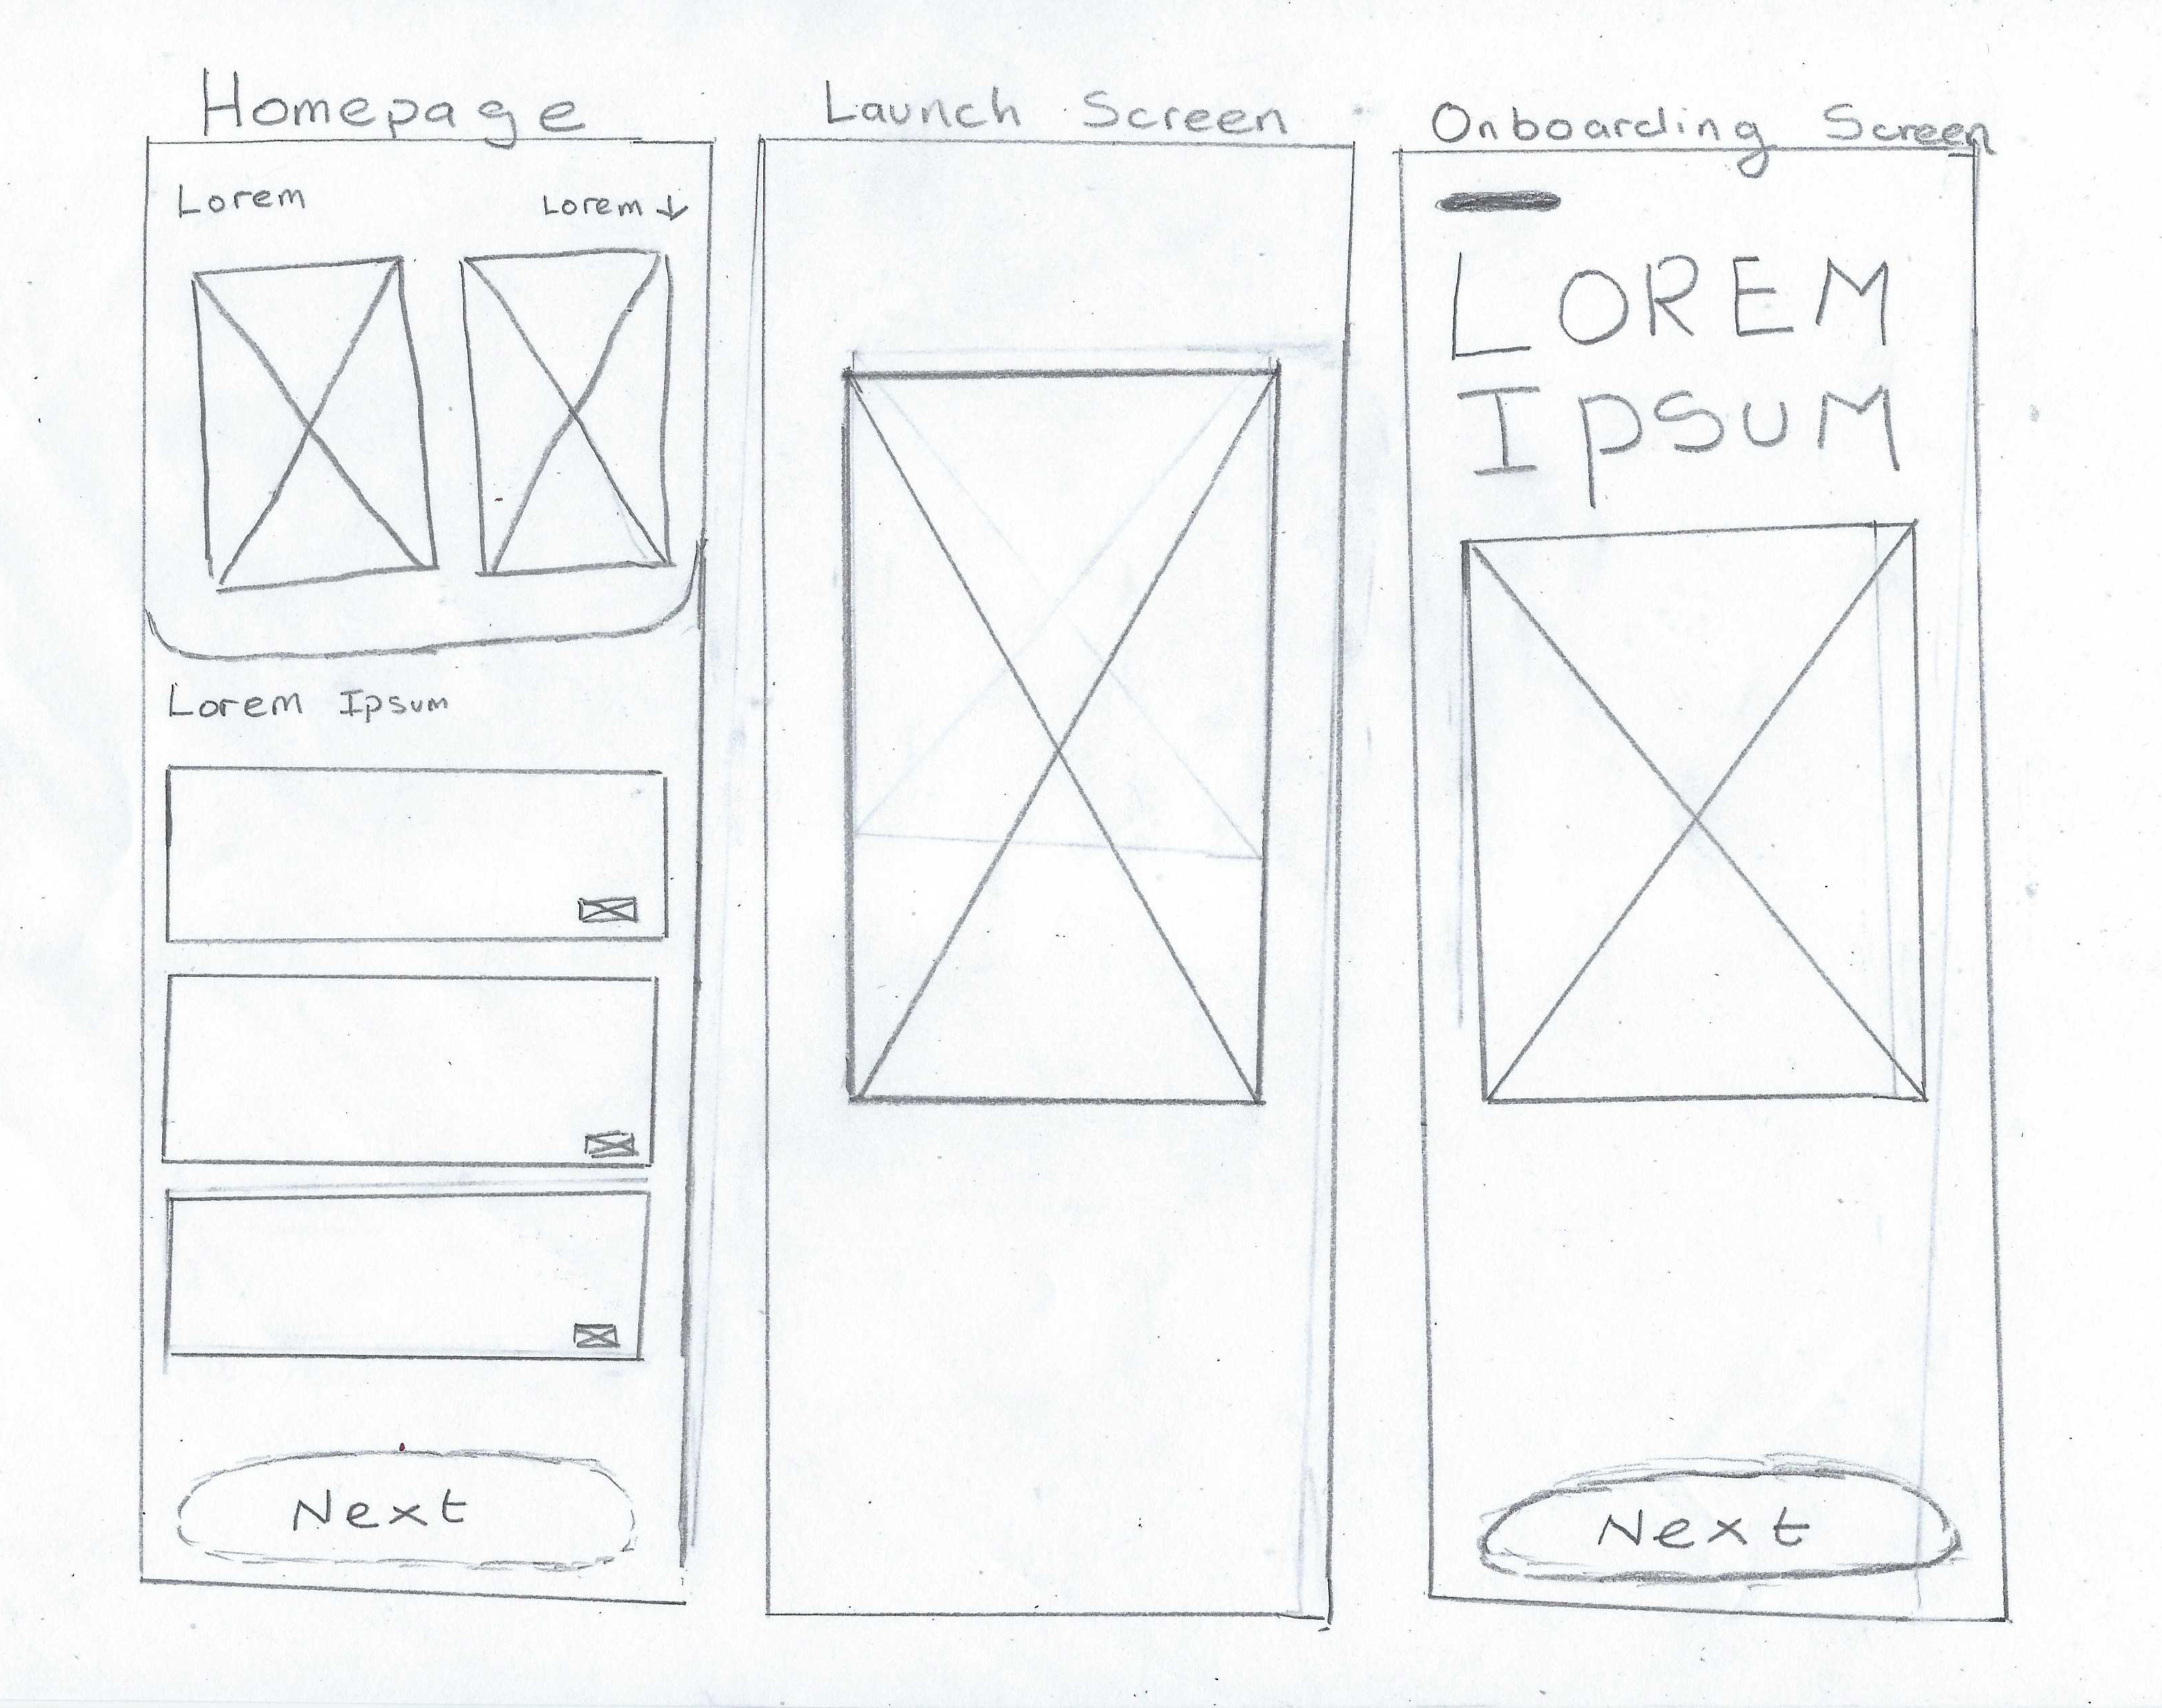 Homepage
Lorem
Lorem ↓
Lorem Ipsum
Next
Launch Screen
Onboarding Screen
LOREM
IpsuM
Next